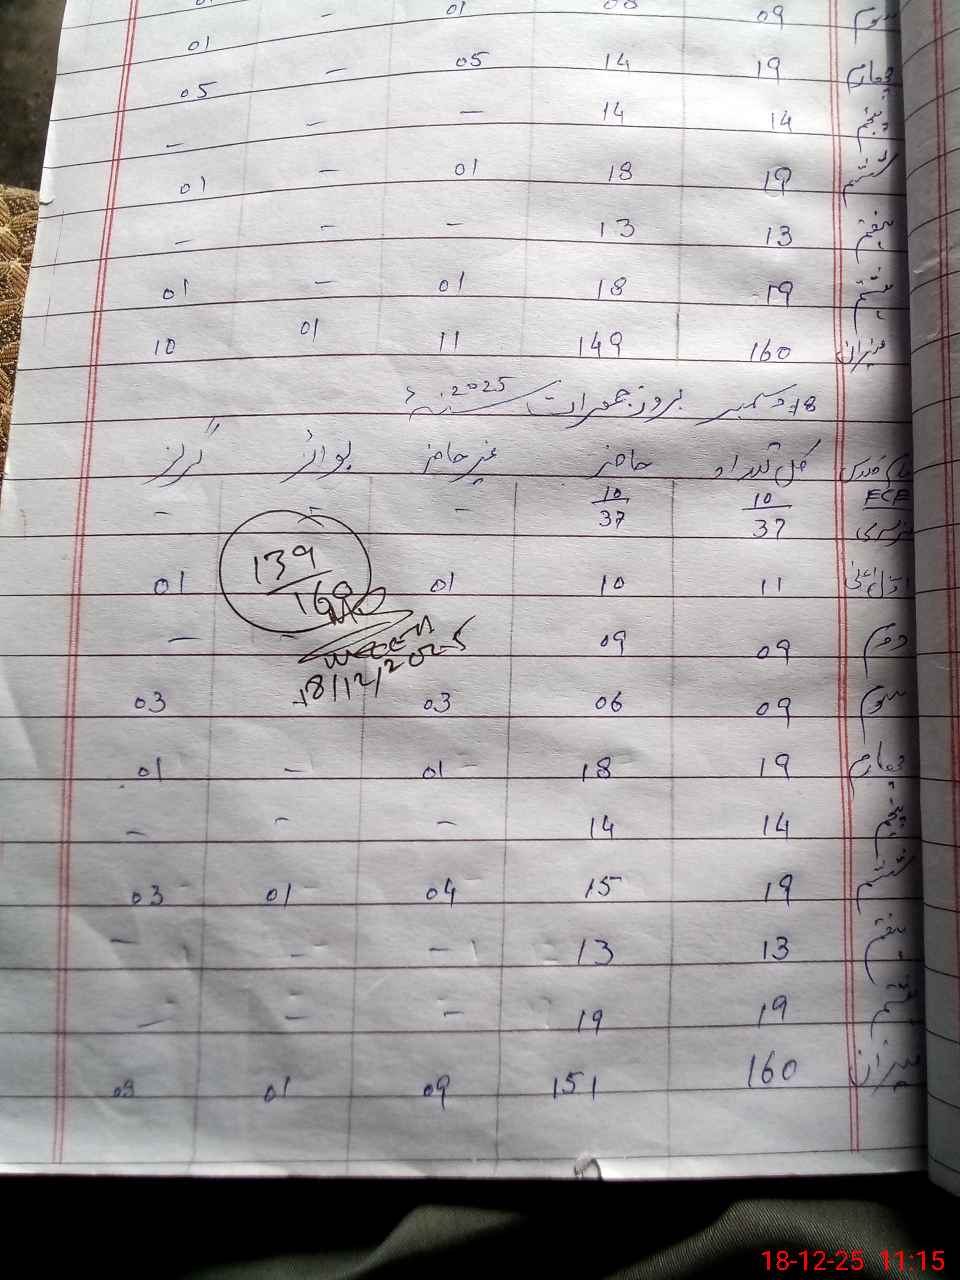 سوم 09 08 01 - 01
چہارم 19 14 05 - 05
پنجم 14 14 - - -
ششم 19 18 01 - 01
ہفتم 13 13 - - -
ہشتم 19 18 01 - 01
میزان 160 149 11 01 10
18 دسمبر بروز جمعرات 2025ء
کل تعداد حاضر غیر حاضر بوائز گرلز
ECE 10 10
نرسری 37 37 - - -
11 10 01 01
دوم 09 09 - -
سوم 09 06 03 03
چہارم 19 18 01 - 01
پنجم 14 14 - - -
ششم 19 15 04 01 03
ہفتم 13 13 - - -
ہشتم 19 19 - - -
میزان 160 151 09 01
139
160
18/12/2025
18-12-25 11:15